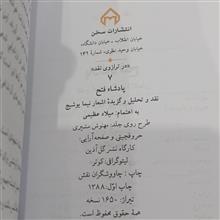 انتشارات سخن
خیابان انقلاب ـ خیابان دانشگاه،
خیابان وحید نظری، شمارهٔ ۱۴۶
«در ترازوی نقد»
۷
پادشاه فتح
نقد و تحلیل و گزیدهٔ اشعار نیما یوشیج
به اهتمام: میلاد عظیمی
طرح روی جلد: مهنوش مشیری
حروفچینی و صفحه‌آرایی:
کارگاه نشر گل‌آذین
لیتوگرافی: کوثر
چاپ: چاووشگران نقش
چاپ اوّل: ۱۳۸۸
تیراژ: ۱۶۵۰ نسخه
همهٔ حقوق محفوظ است.